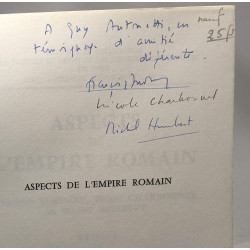 A Guy Antonetti, en
témoignage d'amitié
déférente.
neuf
25F
Nicole Charbonnel
Michel Humbert
ASPECTS DE L'EMPIRE ROMAIN
ASPECTS
L'EMPIRE ROMAIN